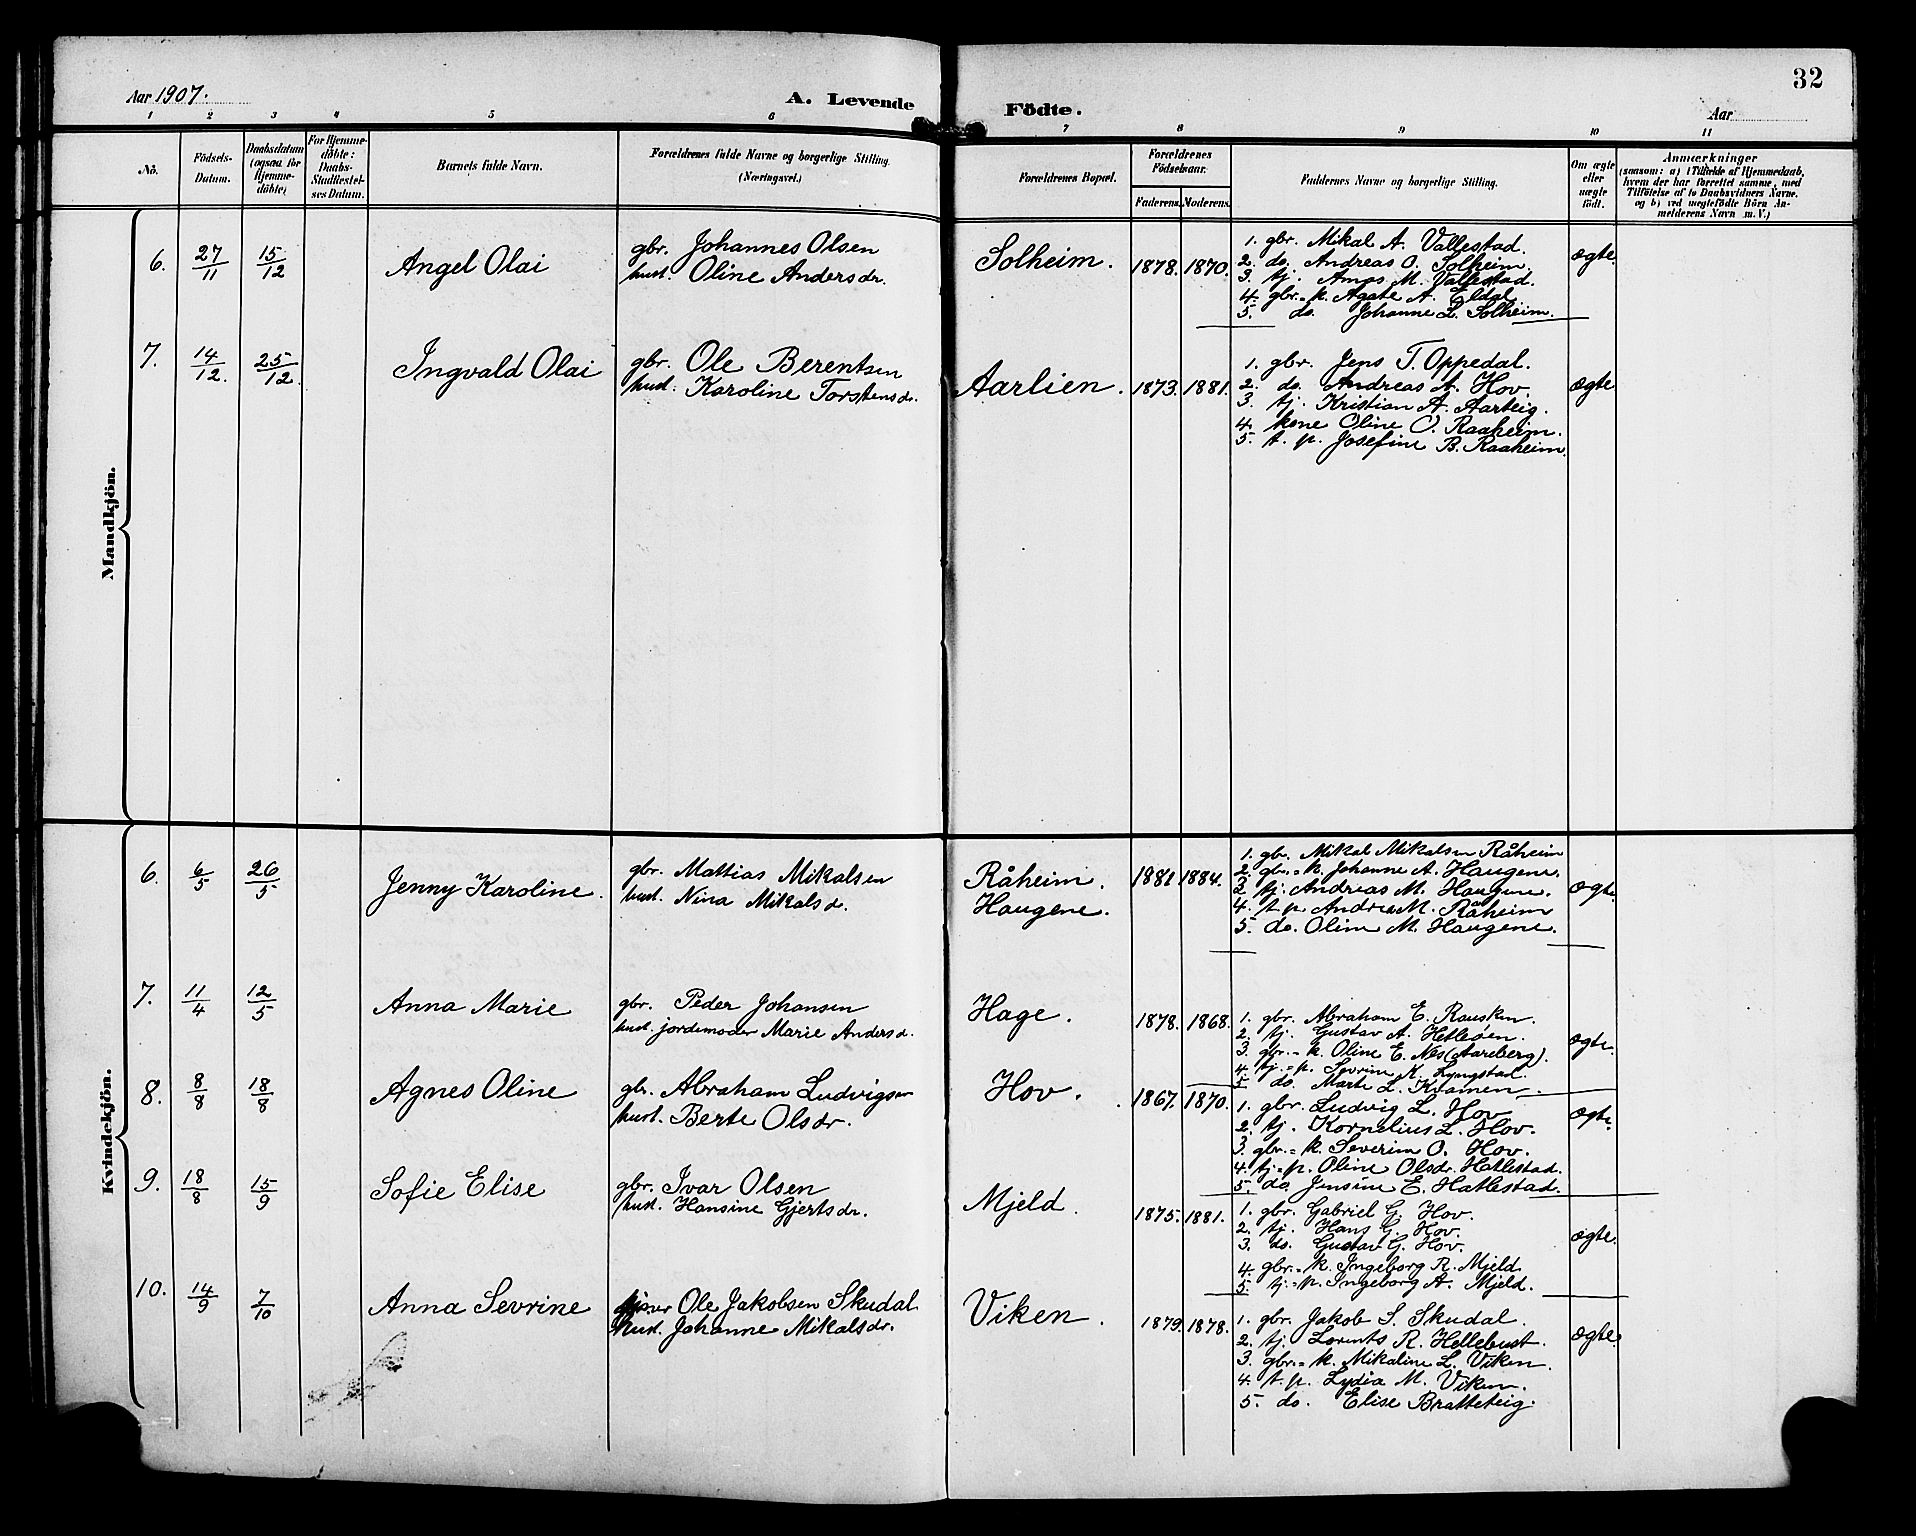 32
Aar 1907.
A. Levende Födte.
Aar
1 2 3 4 5 6 7 8 9 10 11
No.
Födsels-Datum.
Daabsdatum (ogsaa for Hjemme-döbte)
For Hjemme-döbte: Daabs-Stadfæstel-ses Datum.
Barnets fulde Navn.
Forældrenes fulde Navne og borgerlige Stilling. (Næringsvei.)
Forældrenes Bopæl.
Forældrenes Födselsaar.
Faderens. Moderens.
Faddernes Navne og borgerlige Stilling.
Om ægte eller uægte födt.
Anmærkninger
(saasom: a) i Tilfælde af Hjemmedaab,
hvem der har forrettet samme, med
Tilföielse af to Daabsvidners Navne.
og b) ved uægtefödte Börn An-
melderens Navn m. V.)
Mandkjön.
6. 27/11 15/12 Angel Olai
gbr. Johannes Olsen
hust. Oline Andersdr.
Solheim. 1878. 1870.
1. gbr. Mikal A. Vallestad.
2. do. Andreas O. Solheim.
3. tj. Amas M. Vallestad.
4. gbr.=k. Agate A. Eldal
5. do. Johanne L. Solheim.
ægte.
7. 14/12. 25/12. Ingvald Olai
gbr. Ole Berentsen
hust. Karoline Torstensdr.
Aarlien. 1873. 1881.
1. gbr. Jens T. Oppedal.
2. do. Andreas A. Hov.
3. tj. Kristian A. Aarteig.
4. kone Oline O. Raaheim.
5. t. p. Josefine B. Raaheim.
ægte
Kvindekjön.
6. 6/5 26/5 Jenny Karoline.
gbr. Mattias Mikalsen
hust. Nina Mikalsdr.
Råheim.
Haugene.
1881 1884.
1. gbr. Mikal Mikalsen Råheim
2. gbr.=k. Johanne A. Haugene.
3. tj. Andreas M. Haugene.
4. t. p. Andrea M. Råheim
5. do. Oline M. Haugene.
ægte.
7. 11/4 12/5 Anna Marie
gbr. Peder Johansen
hust. jordemoder Marie Andersd.
Hage. 1878. 1868.
1. gbr. Abraham E. Rausken.
2. tj. Gustav A. Hetleøen.
3. gbr.=k. Oline E. Nes (Aareberg).
4. tj.=p. Sevrine K. Lyngstad.
5. do. Marte L. Kvamen.
ægte.
8. 8/8 18/8 Agnes Oline
gbr. Abraham Ludvigsen
hust. Berte Olsdr.
Hov. 1867. 1870.
1. gbr. Ludvig L. Hov
2. tj. Kornelius L. Hov.
3. gbr.=k. Severine O. Hov.
4. tj.=p. Oline Olsdr. Hatlestad.
5. do. Jensine E. Hatlestad.
ægte.
9. 18/8 15/9 Sofie Elise
gbr. Ivar Olsen
hust. Hansine Gjertsdr.
Mjeld. 1875. 1881.
1. gbr. Gabriel G. Hov.
2. tj. Hans G. Hov.
3. do. Gustav G. Hov.
4. gbr.=k. Ingeborg R. Mjeld
5. tj.=p. Ingeborg A. Mjeld.
ægte.
10. 14/9 7/10 Anna Sevrine
Ole Jakobsen Skudal
hust. Johanne Mikalsdr.
Viken. 1879. 1878.
1. gbr. Jakob S. Skudal.
2. tj. Lorents R. Hellebust.
3. gbr.=k. Mikaline L. Viken.
4. t. p. Lydia M. Viken.
5. do. Elise Bratteteig.
ægte.